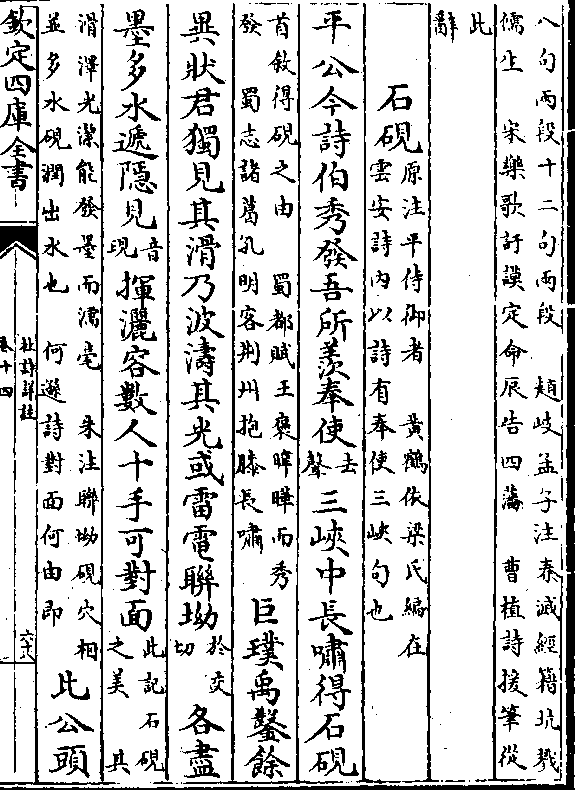 八句兩段十二句兩段　趙岐孟子注秦滅經籍坑戮
儒生　宋樂歌訏謨定命辰告四藩　曹植詩援筆從
此
辭
石硯
原注平侍御者　黃鶴依梁氏編在
雲安詩內以詩有奉使三峽句也
平公今詩伯秀發吾所羨奉使去聲三峽中長嘯得石硯
首敘得硯之由　蜀都賦王褒暐曄而秀
發　蜀志諸葛孔明客荆州抱膝長嘯
巨璞禹鑿餘
異狀君獨見其滑乃波濤其光或雷電聯坳於交切各盡
墨多水遞隱見音現揮灑容數人十手可對面
此記石硯
之美　其
滑澤光潔能發墨而濡毫　朱注聯坳硯穴相
並多水硯潤出水也　何遜詩對面何由即
此公頭
欽定四庫全書
杜詩詳註
卷十四